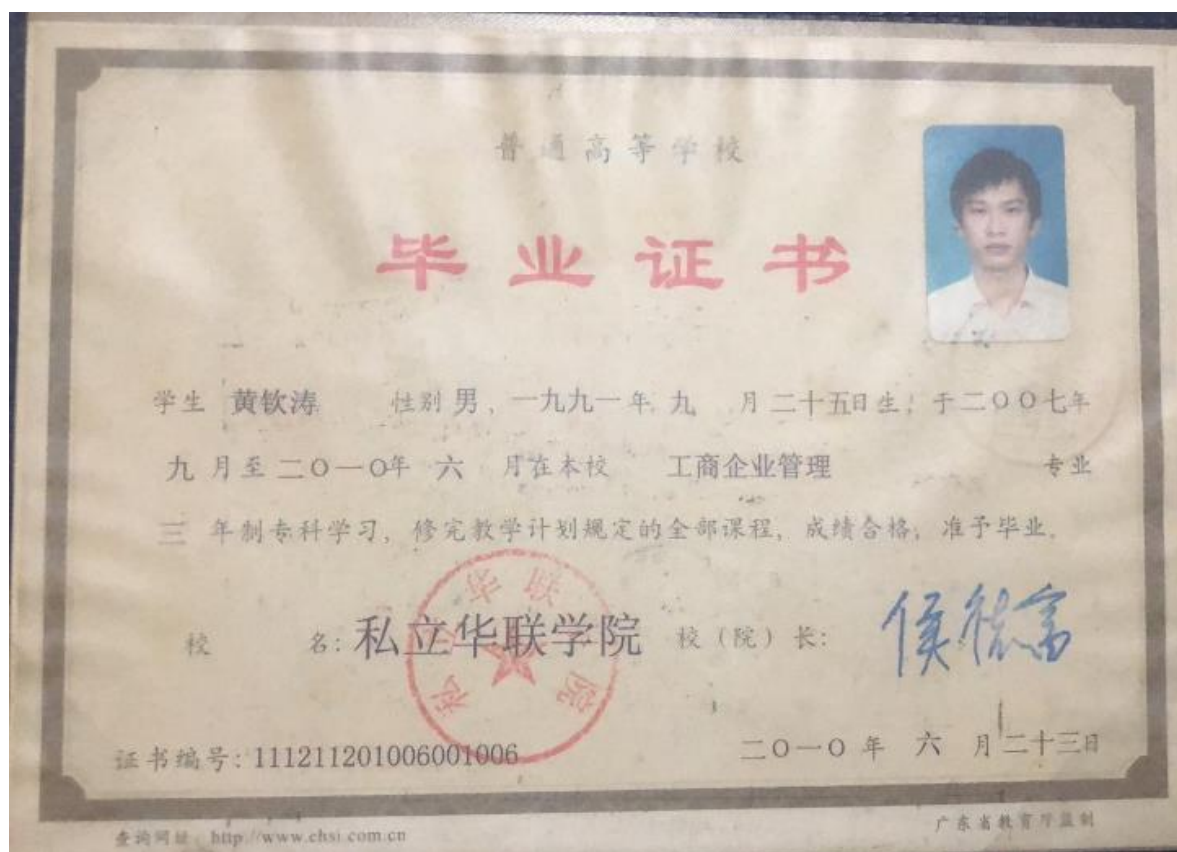 普通高等学校
毕业证书
学生 黄钦涛 性别 男，一九九一年 九 月 二十五日生，于二〇〇七年
九 月至 二〇一〇年 六 月在本校 工商企业管理 专业
三 年制专科学习，修完教学计划规定的全部课程，成绩合格，准予毕业。
校 名：私立华联学院 校（院）长：侯德富
私立华联学院
证书编号：111211201006001006 二〇一〇年 六 月二十三日
查询网址：http://www.chsi.com.cn 广东省教育厅监制